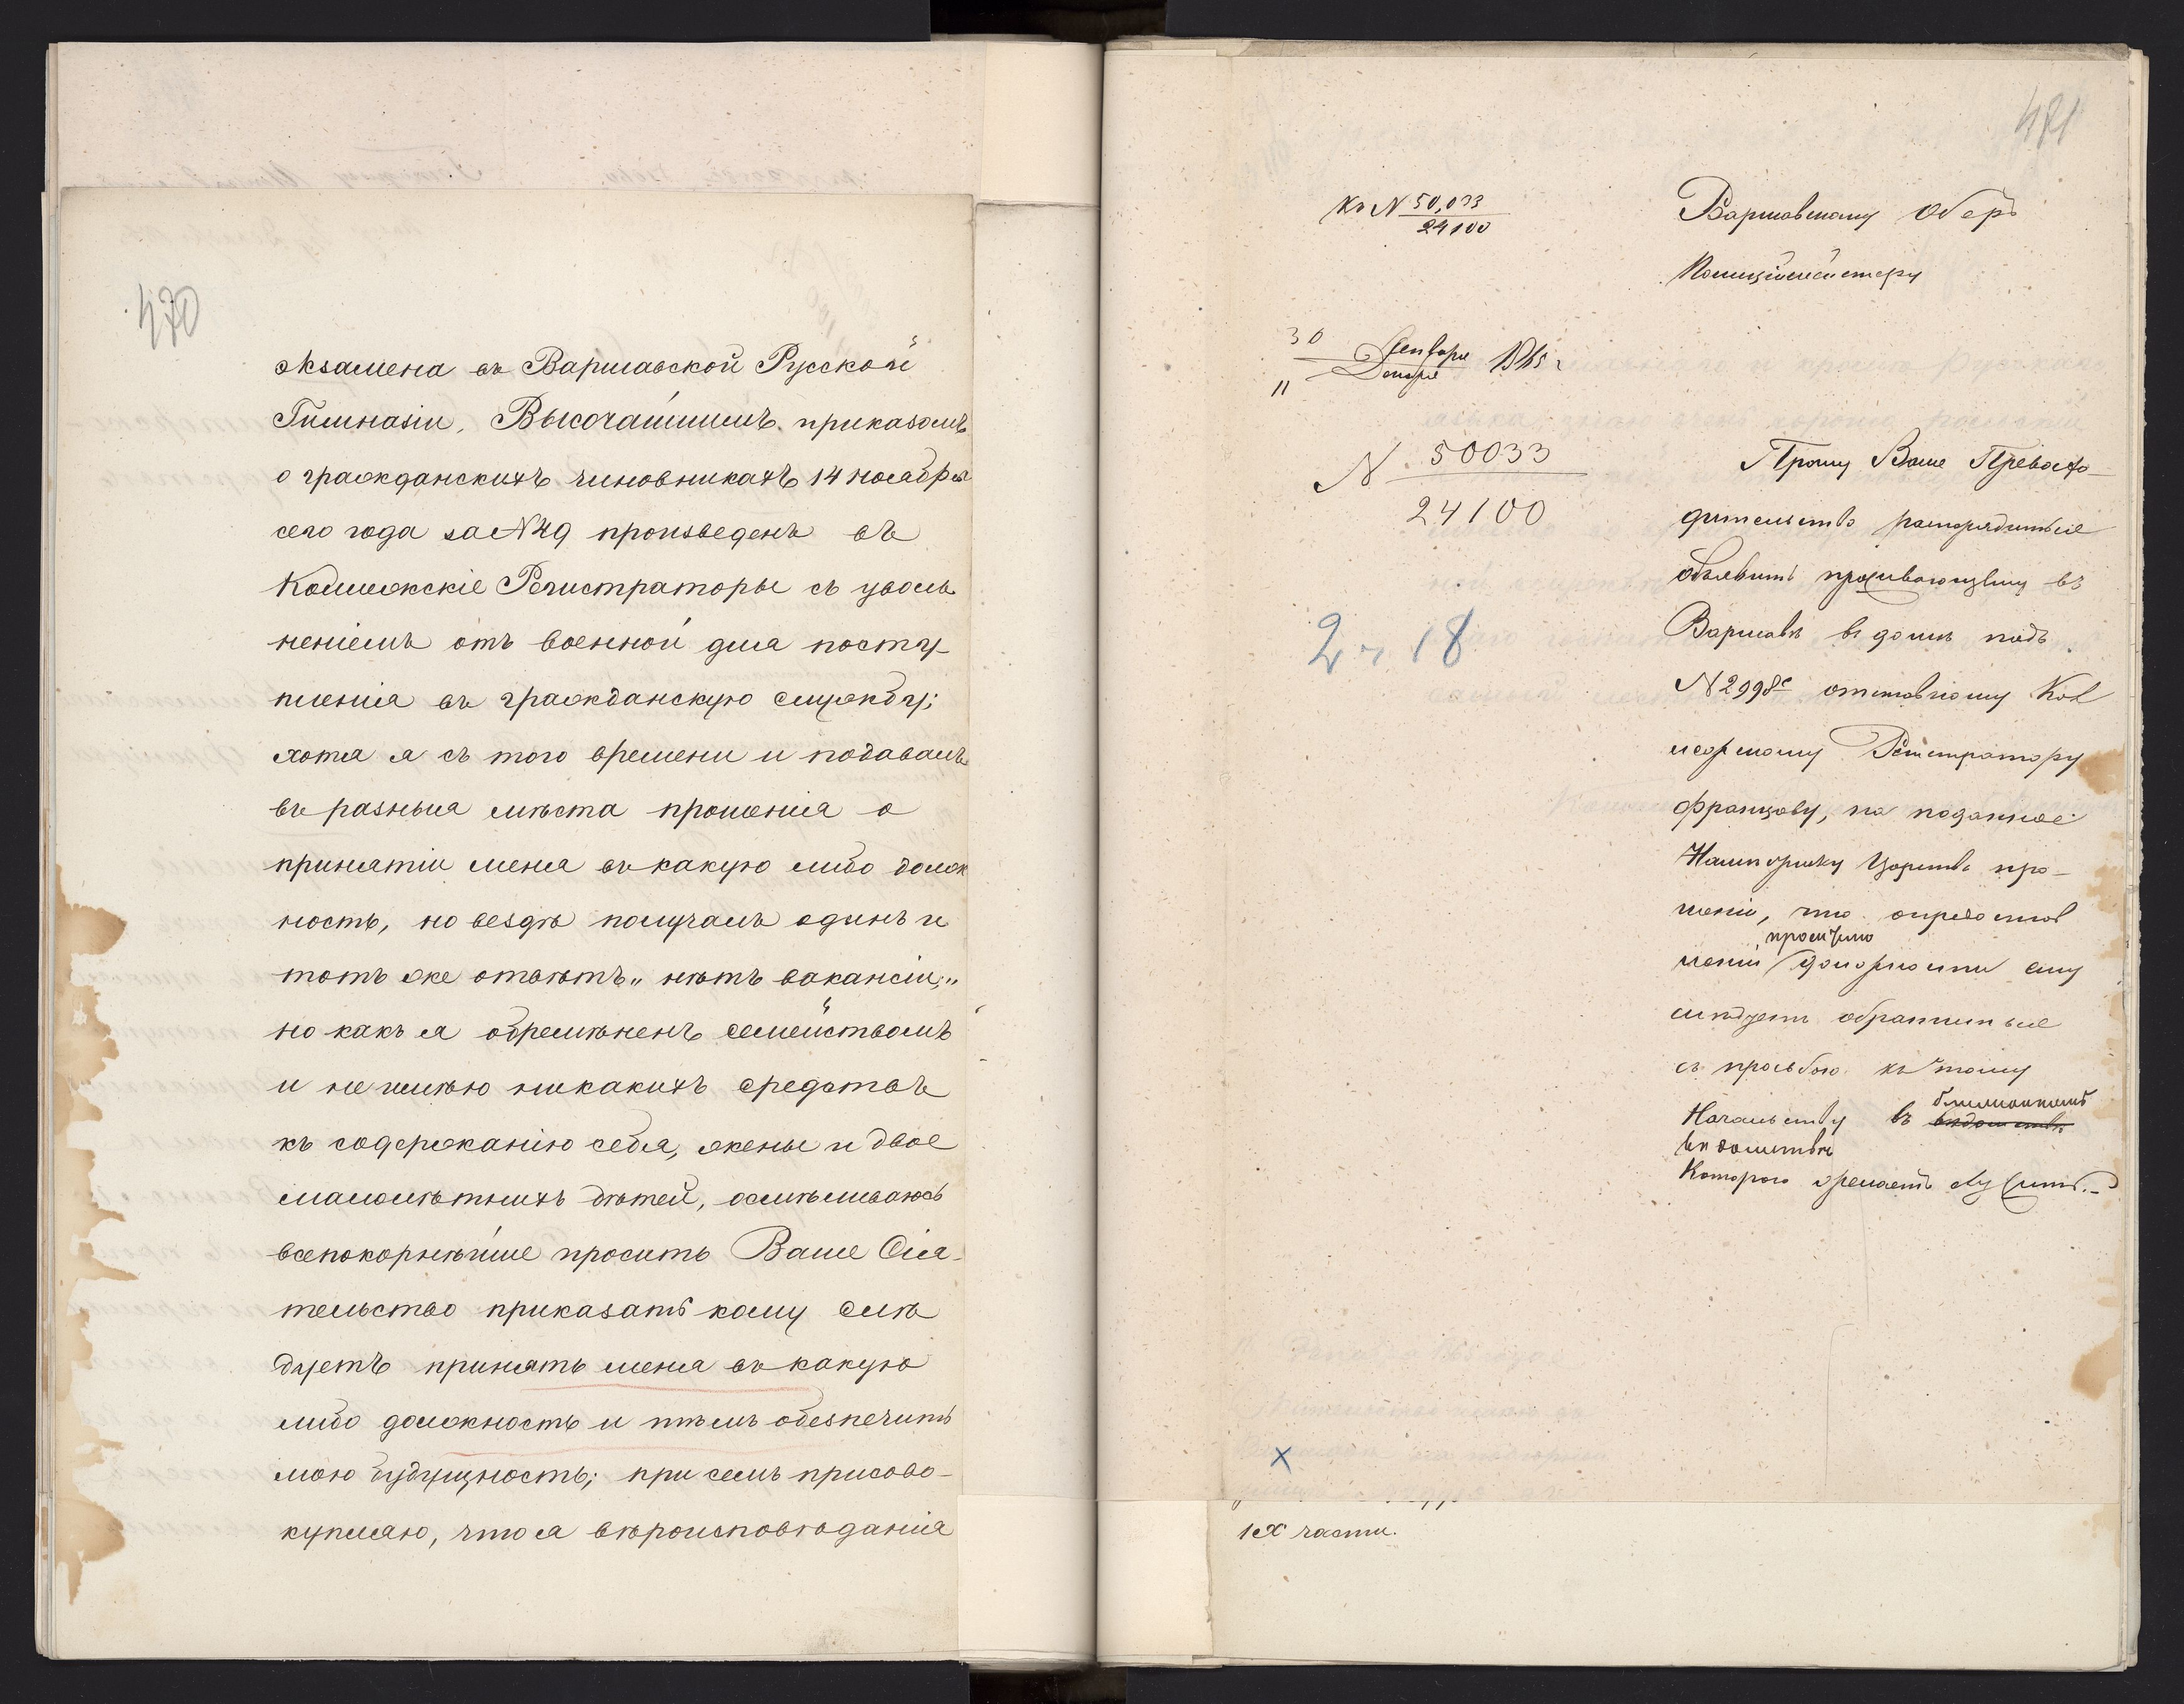 470
экзамена въ Варшавской Русской
Гимназіи, Высочайшимъ приказомъ
о гражданскихъ чиновникахъ 14 ноября
сего года за N 49 произведенъ въ
Коллежскіе Регистраторы съ уволь
неніемъ отъ военной для посту-
пленія въ гражданскую службу;
хотя я съ того времени и подавалъ
въ разныя мѣста прошенія о
принятіи меня въ какую либо долж
ность, но вездѣ получалъ одинъ и
тотъ же отвѣтъ „нѣтъ вакансіи;„
но какъ я обремѣненъ семействомъ
и не имѣю никакихъ средствъ
къ содержанію себя, жены и двое
малолѣтнихъ дѣтей, осмѣливаюсь
всепокорнѣйше просить Ваше Сія-
тельство приказать кому слѣ
дуетъ принять меня въ какую
либо должность и тѣмъ обезпечить
мою будущность; при семъ присово-
купляю, что я вѣроисповѣданія
481
Къ N 50,033
24100
Варшавскому Оберъ
Полиціймейстеру
30
11
Декабря 1865 г
N 50033
24100
2 ч 18
Прошу Ваше Превосхо-
дительство распорядиться
объявить проживающему въ
Варшавѣ въ домѣ подъ
N 2998 с отставному Кол
лежскому Регистратору
Францову, на поданное
Намѣстнику Царства про-
шеніе, что о предостав
леніи просимой должности ему
слѣдуетъ обратиться
съ просьбою къ тому
Начальству въ
вѣдомствѣ
Которого желаетъ служить.-
х
части.